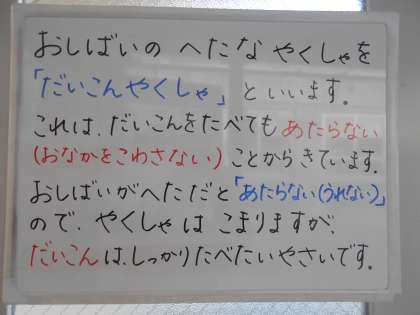 おしばいの へたな やくしゃを
「だいこんやくしゃ」 といいます。
これは、だいこんをたべても あたらない
(おなかをこわさない) ことからきています。
おしばいがへただと「あたらない(うれない)」
ので、やくしゃは こまりますが、
だいこんは、しっかりたべたいやさいです。